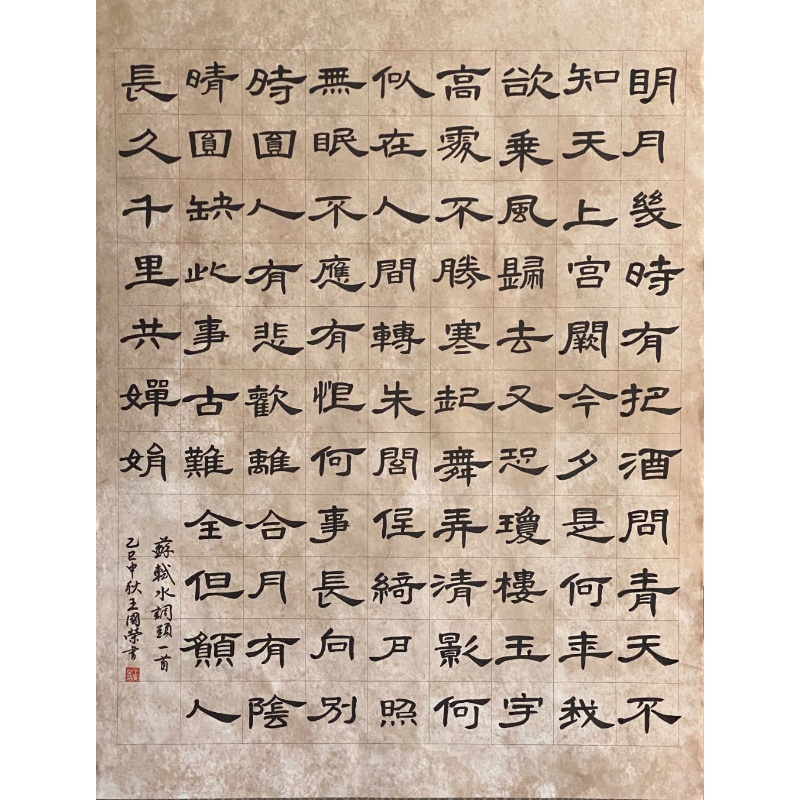 明月幾時有把酒問青天不
知天上宫闕今夕是何年我
欲乘風歸去又恐瓊樓玉宇
高處不勝寒起舞弄清影何
似在人間轉朱閣低綺户照
無眠不應有恨何事長向別
時圓人有悲歡離合月有陰
晴圓缺此事古難全但願人
長久千里共嬋娟
蘇軾水調頭一首
乙巳中秋王國榮書